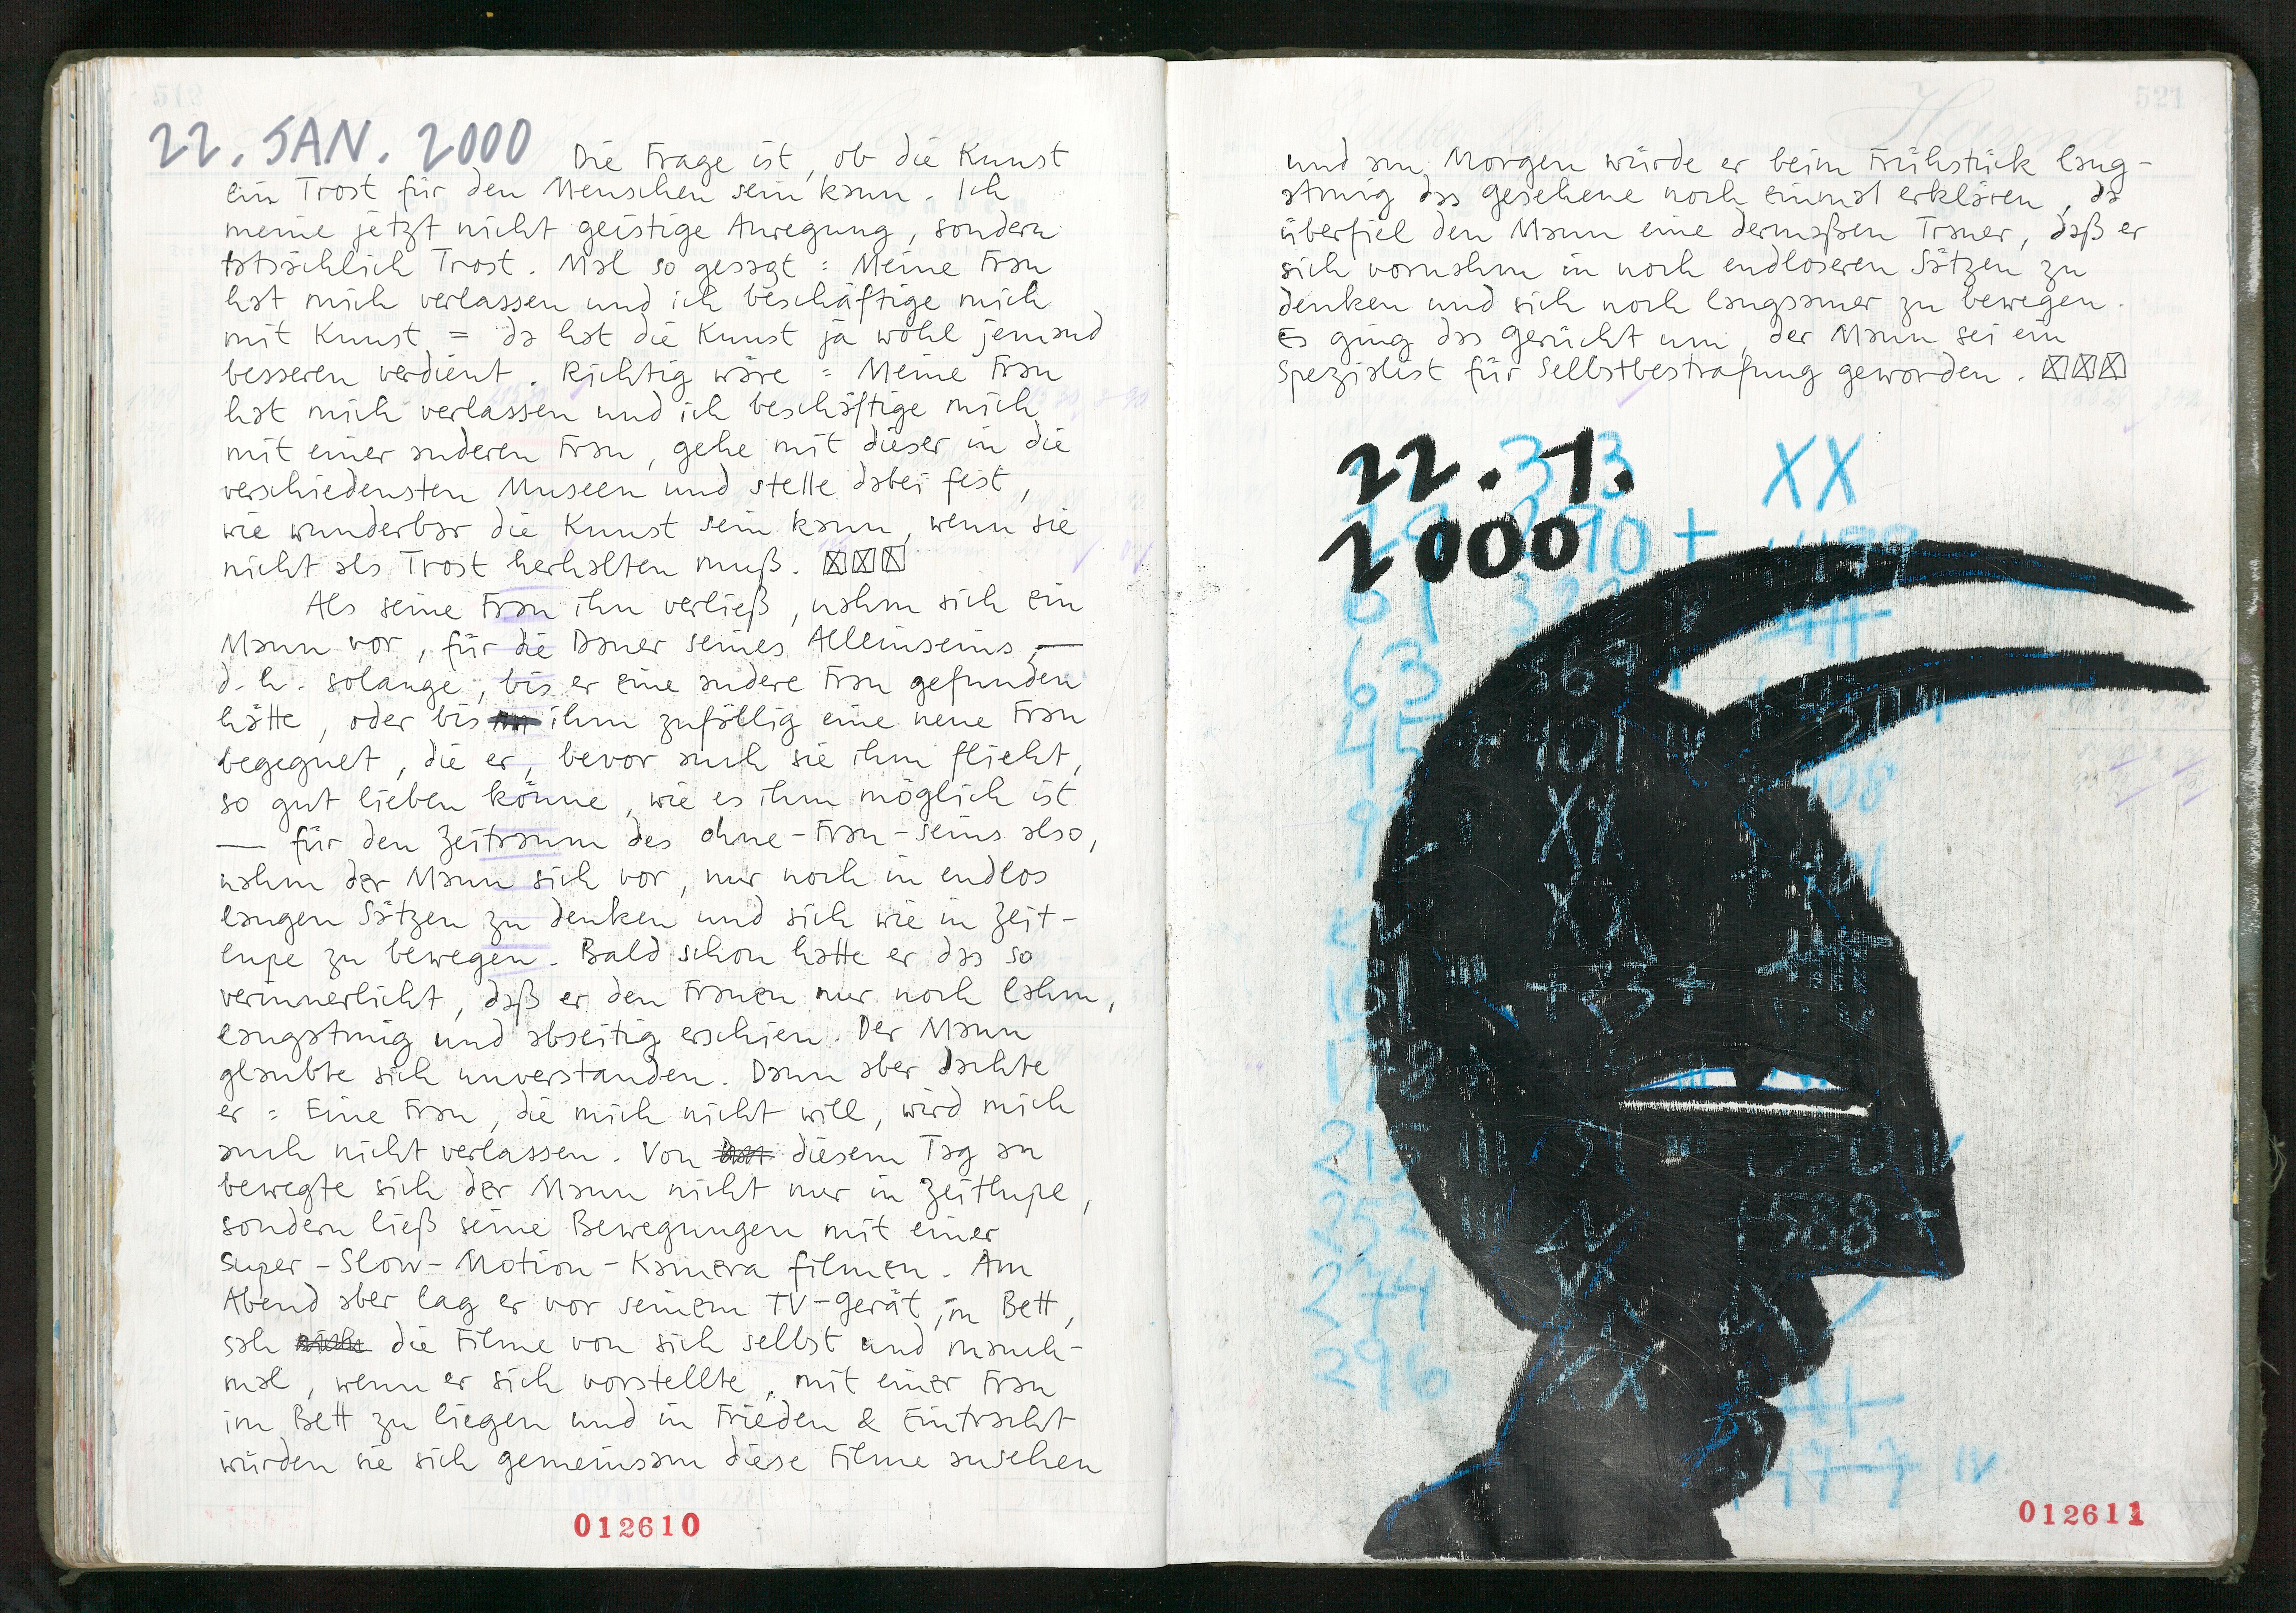 22. JAN. 2000 Die Frage ist, ob die Kunst
ein Trost für den Menschen sein kann. Ich
meine jetzt nicht geistige Anregung, sondern
tatsächlich Trost. Mal so gesagt: Meine Frau
hat mich verlassen und ich beschäftige mich
mit Kunst = da hat die Kunst ja wohl jemand
besseren verdient. Richtig wäre: Meine Frau
hat mich verlassen und ich beschäftige mich
mit einer anderen Frau, gehe mit dieser in die
verschiedensten Museen und stelle dabei fest,
wie wunderbar die Kunst sein kann, wenn sie
nicht als Trost herhalten muß. ☒☒☒
Als seine Frau ihn verließ, nahm sich ein
Mann vor, für die Dauer seines Alleinseins, —
d.h. solange, bis er eine andere Frau gefunden
hätte, oder bis ihm zufällig eine neue Frau
begegnet, die er, bevor auch sie ihm flieht,
so gut lieben könne, wie es ihm möglich ist
— für den Zeitraum des ohne-Frau-seins also,
nahm der Mann sich vor, nur noch in endlos
langen Sätzen zu denken und sich wie in Zeit-
lupe zu bewegen. Bald schon hatte er das so
verinnerlicht, daß er den Frauen nur noch lahm,
langatmig und abseitig erschien. Der Mann
glaubte sich unverstanden. Dann aber dachte
er: Eine Frau, die mich nicht will, wird mich
auch nicht verlassen. Von diesem Tag an
bewegte sich der Mann nicht nur in Zeitlupe,
sondern ließ seine Bewegungen mit einer
Super-Slow-Motion-Kamera filmen. Am
Abend aber lag er vor seinem TV-Gerät, im Bett,
sah die Filme von sich selbst und manch-
mal, wenn er sich vorstellte, mit einer Frau
im Bett zu liegen und in Frieden & Eintracht
würden sie sich gemeinsam diese Filme ansehen
012610
521
und am Morgen würde er beim Frühstück lang-
atmig das gesehene noch einmal erklären, da
überfiel den Mann eine dermaßen Trauer, daß er
sich vornahm in noch endloseren Sätzen zu
denken und sich noch langsamer zu bewegen.
Es ging das Gerücht um, der Mann sei ein
Spezialist für Selbstbestrafung geworden. ☒☒☒
22. 1.
2000
XX
63
369
+ 401 IV
XX
XX
+ 33 +
215
252
+ 588 +
274
XX
296
012611